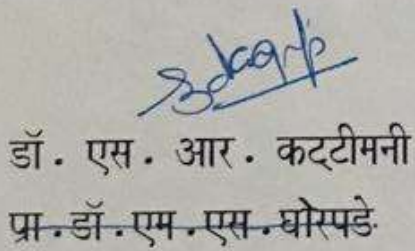 डॉ. एस. आर. कट्टीमनी
प्रा. डॉ. एम. एस. घोरपडे.